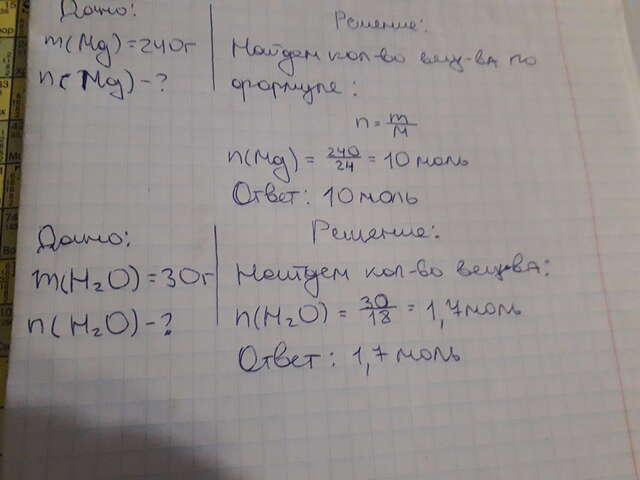 Дано:
m(Mg) = 240г
n(Mg) - ?
Решение:
Найдем кол-во вещ-ва по
формуле:
n = m/M
n(Mg) = 240/24 = 10 моль
Ответ: 10 моль
Дано:
m(H₂O) = 30г
n(H₂O) - ?
Решение:
Найдем кол-во вещ-ва:
n(H₂O) = 30/18 = 1,7 моль
Ответ: 1,7 моль